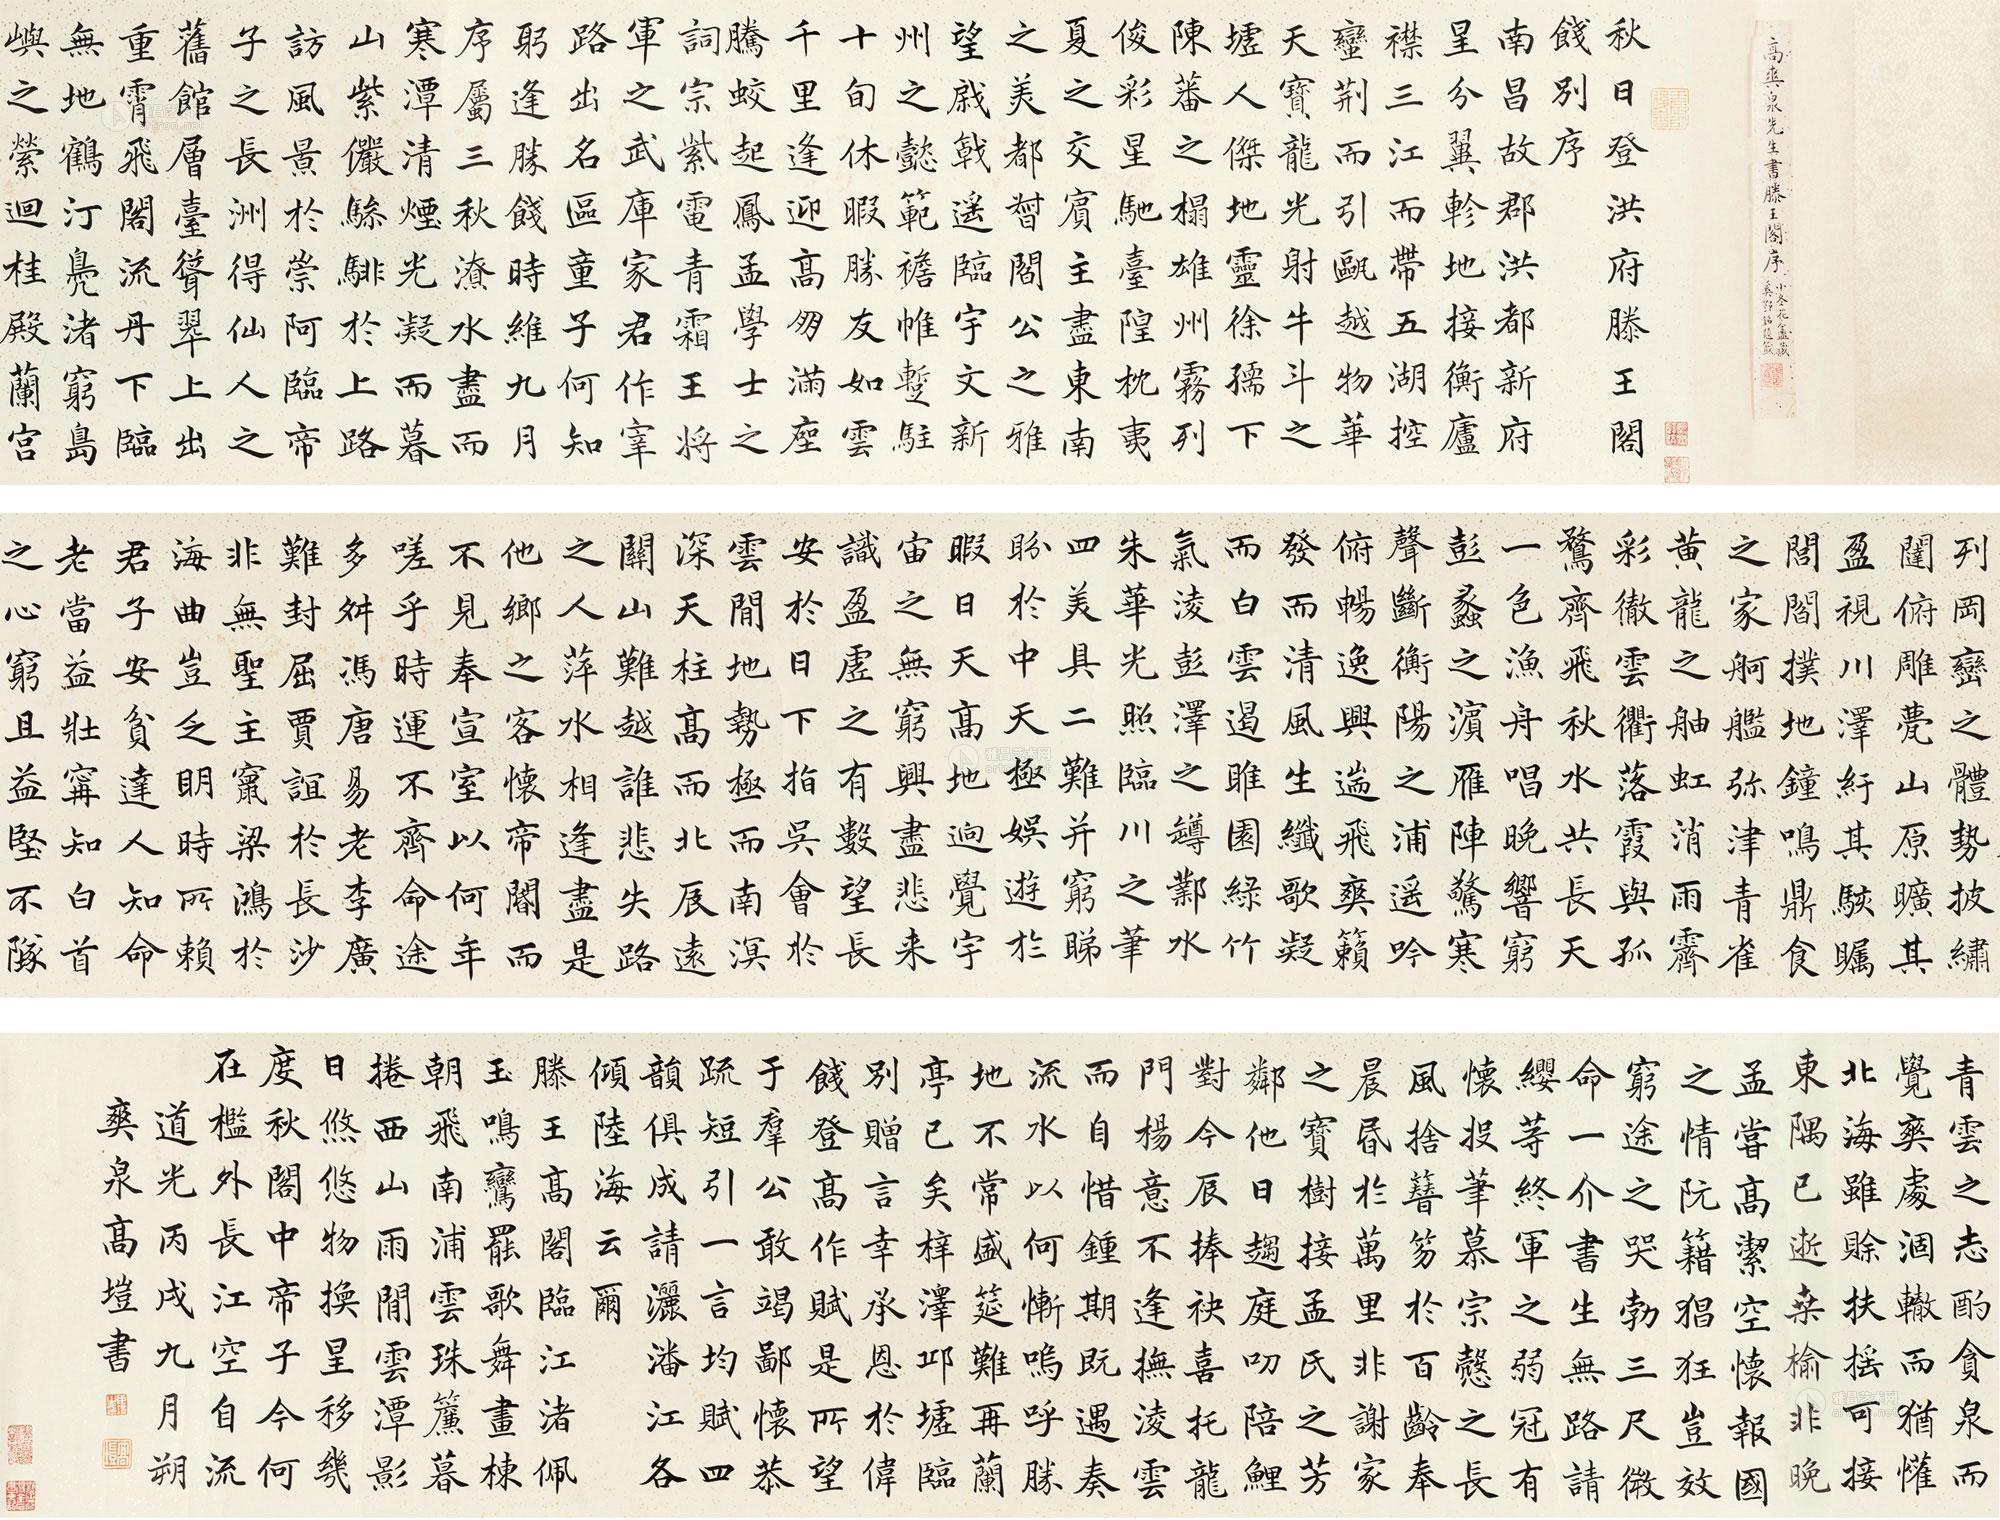 高爽泉先生書滕王閣序
小冬花盦藏
秋日登洪府滕王閣
餞別序
南昌故郡洪都新府
星分翼軫地接衡廬
襟三江而帶五湖控
蠻荊而引甌越物華
天寶龍光射牛斗之
墟人傑地靈徐孺下
陳蕃之榻雄州霧列
俊彩星馳臺隍枕夷
夏之交賓主盡東南
之美都督閻公之雅
望戚戟遥臨宇文新
州之懿範襜帷蹔駐
十旬休暇勝友如雲
千里逢迎高朋滿座
騰蛟起鳳孟學士之
詞宗紫電青霜王將
軍之武庫家君作宰
路出名區童子何知
躬逢勝餞時維九月
序屬三秋潦水盡而
寒潭清煙光凝而暮
山紫儼驂騑於上路
訪風景於崇阿臨帝
子之長洲得仙人之
舊館層臺聳翠上出
重霄飛閣流丹下臨
無地鶴汀鳧渚窮島
嶼之縈迴桂殿蘭宮
列岡巒之體勢披繡
闥俯雕甍山原曠其
盈視川澤紆其駭矚
閭閻撲地鐘鳴鼎食
之家舸艦弥津青雀
黃龍之舳虹消雨霽
彩徹雲衢落霞與孤
鶩齊飛秋水共長天
一色漁舟唱晚響窮
彭蠡之濱雁陣驚寒
聲斷衡陽之浦遥吟
俯暢逸興遄飛爽籟
發而清風生纖歌凝
而白雲遏睢園綠竹
氣淩彭澤之罇鄴水
朱華光照臨川之筆
四美具二難并窮睇
盼於中天極娛遊於
暇日天高地逈覺宇
宙之無窮興盡悲来
識盈虛之有數望長
安於日下指吳會於
雲間地勢極而南溟
深天柱高而北辰遠
關山難越誰悲失路
之人萍水相逢盡是
他鄉之客懷帝閽而
不見奉宣室以何年
嗟乎時運不齊命途
多舛馮唐易老李廣
難封屈賈誼於長沙
非無聖主竄梁鴻於
海曲豈乏明時所賴
君子安貧達人知命
老當益壯甯知白首
之心窮且益堅不隊
青雲之志酌貪泉而
覺爽處涸轍而猶懽
北海雖賒扶搖可接
東隅已逝桑榆非晚
孟嘗高潔空懷報國
之情阮籍猖狂豈效
窮途之哭勃三尺微
命一介書生無路請
纓等終軍之弱冠有
懷投筆慕宗慤之長
風捨簪笏於百齡奉
晨昏於萬里非謝家
之寶樹接孟氏之芳
鄰他日趨庭叨陪鯉
對今辰捧袂喜托龍
門楊意不逢撫淩雲
而自惜鍾期既遇奏
流水以何慚嗚呼勝
地不常盛筵難再蘭
亭已矣梓澤邱墟臨
別贈言幸承恩於偉
餞登高作賦是所望
于羣公敢竭鄙懷恭
疏短引一言均賦四
韻俱成請灑潘江各
傾陸海云爾
滕王高閣臨江渚佩
玉鳴鸞罷歌舞畫棟
朝飛南浦雲珠簾暮
捲西山雨閒雲潭影
日悠悠物換星移幾
度秋閣中帝子今何
在檻外長江空自流
道光丙戌九月朔
爽泉高塏書